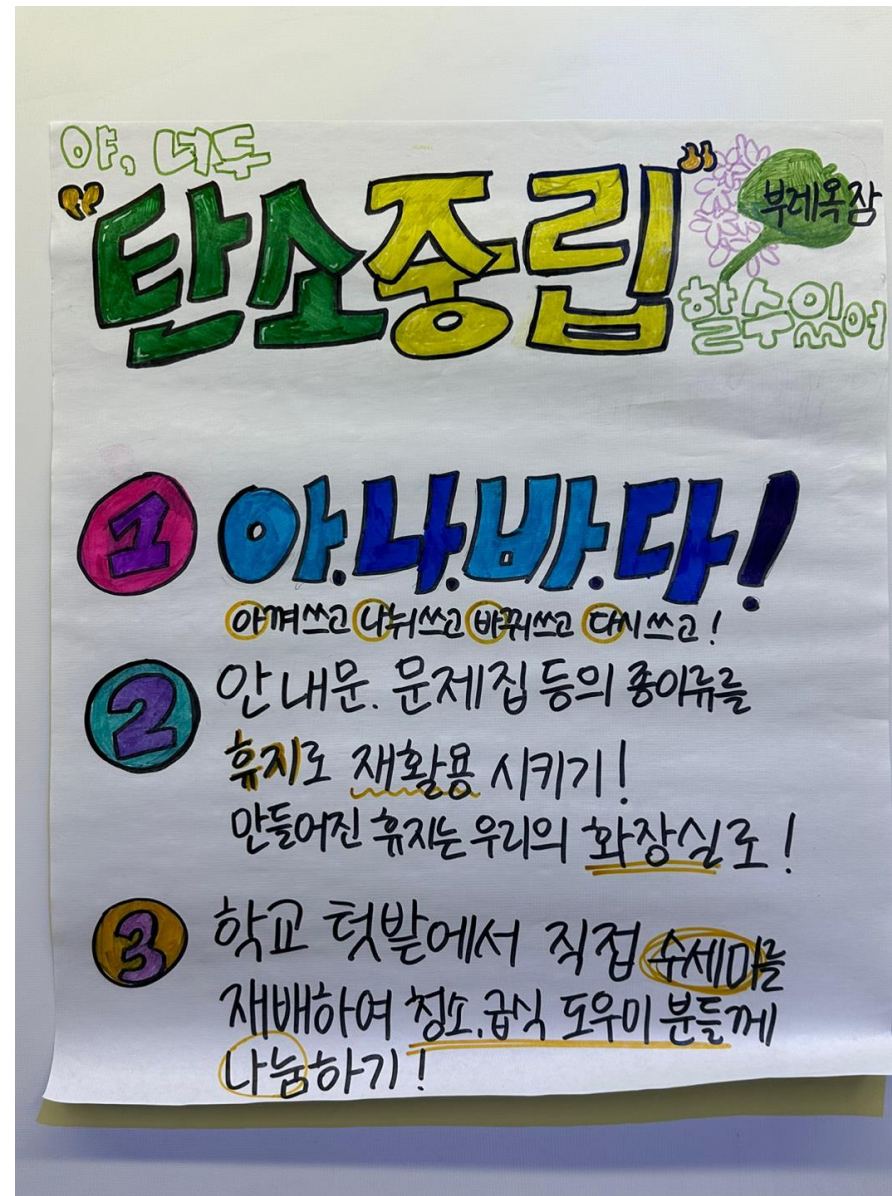 야, 너두
"탄소중립"
부레옥잠
할수있어
1 아.나.바.다!
아껴쓰고 나눠쓰고 바꿔쓰고 다시쓰고!
2 안내문. 문제집 등의 종이류를
휴지로 재활용 시키기!
만들어진 휴지는 우리의 화장실로!
3 학교 텃밭에서 직접 수세미를
재배하여 청소.급식 도우미 분들께
나눔하기!